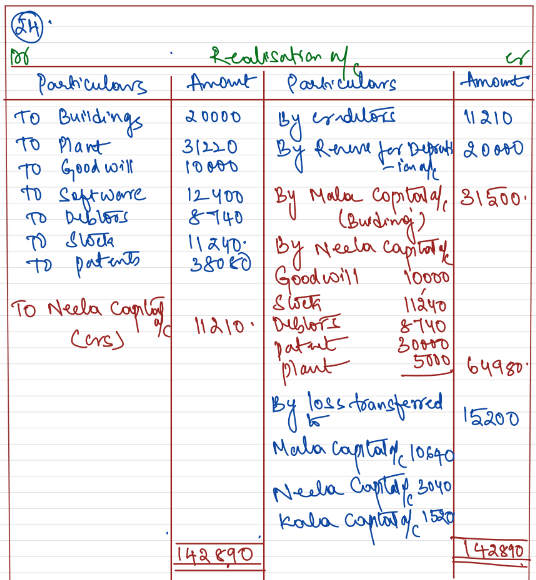 24.
Dr Realisation a/c cr
Particulars Amount Particulars Amount
To Buildings 20000 By creditors 11210
To Plant 31220 By Reserve for Depreciation a/c 20000
To Goodwill 10000
To Software 12400 By Mala Capital a/c 31500.
To Debtors 8740 (Building)
To Stock 11240. By Neela Capital a/c
To patents 38080 Goodwill 10000
Stock 11240
To Neela Capital a/c 11210. Debtors 8740
(crs) patent 30000
plant 5000 64980.
By loss transferred 15200
to
Mala Capital a/c 10640
Neela Capital a/c 3040
Kala Capital a/c 1520
142890 142890